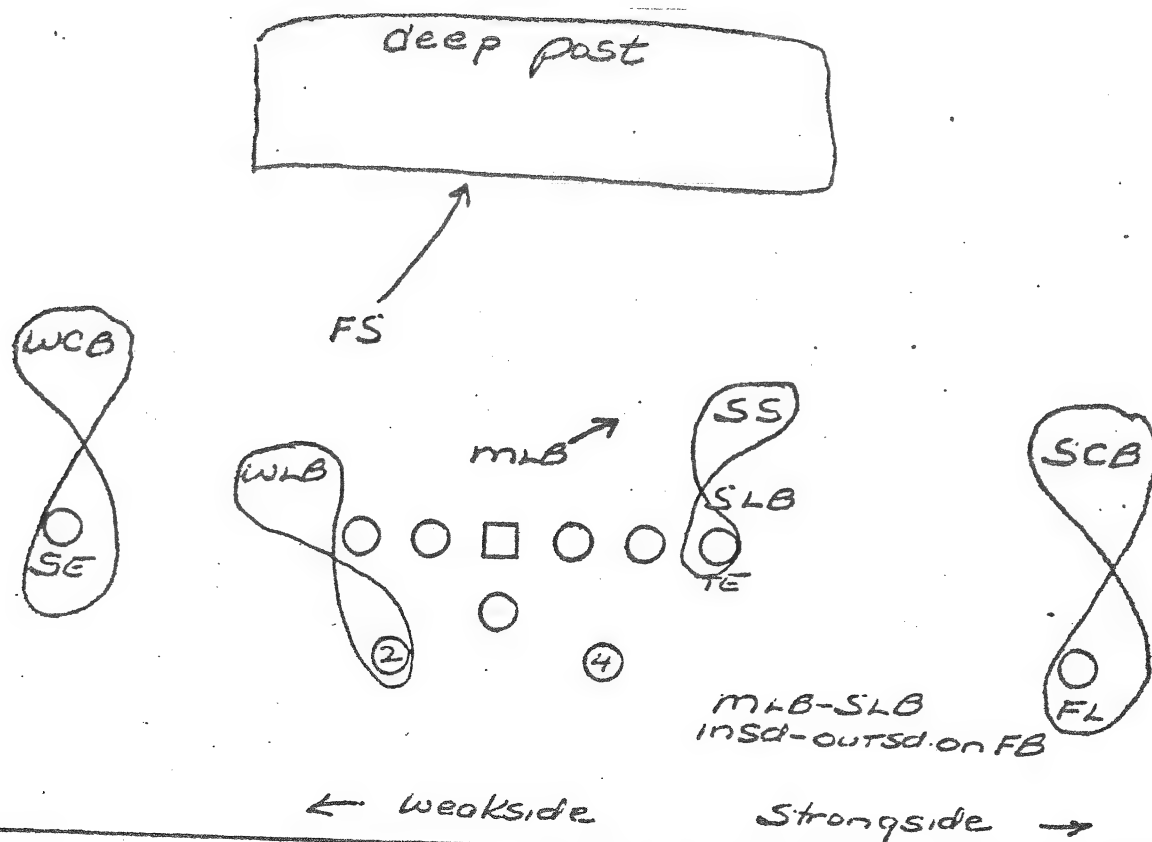 deep post
FS
WCB
SS
SCB
MLB
WLB
SLB
SE
TE
2
4
FL
MLB-SLB
insd-outsd. on FB
← weakside
strongside →